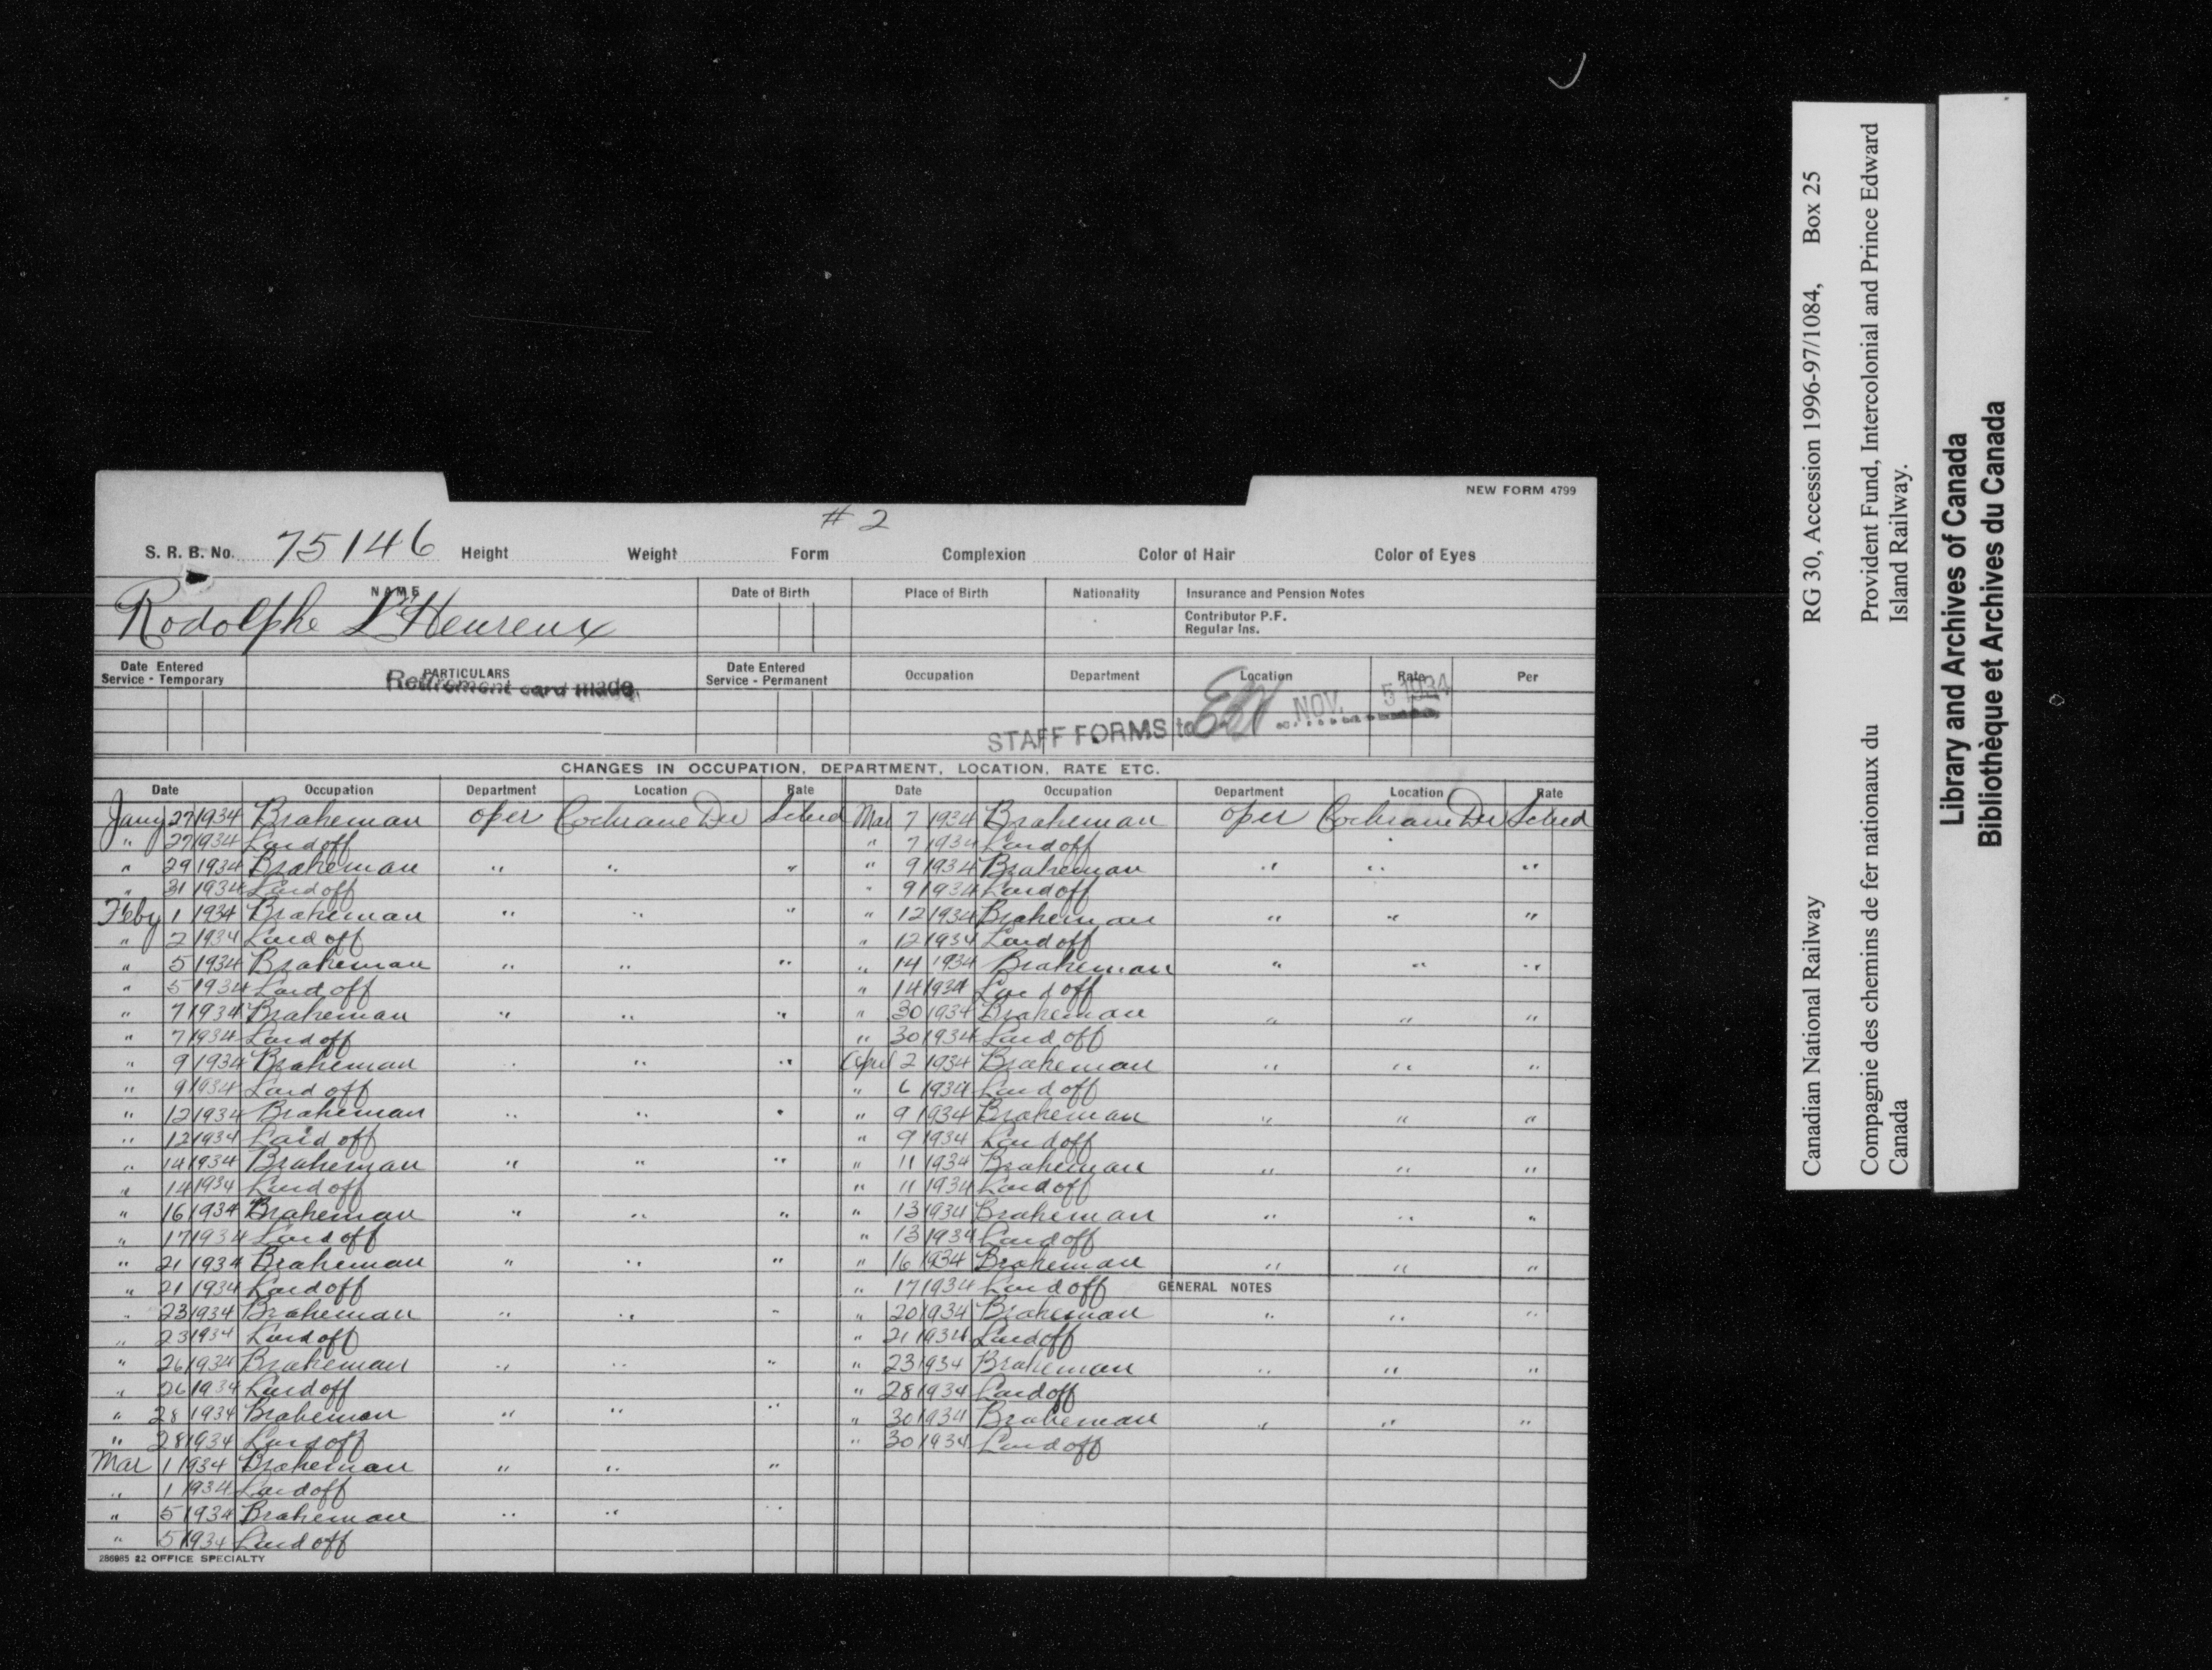 NEW FORM 4799
# 2
S. R. B. No. 75146 Height Weight Form Complexion Color of Hair Color of Eyes
NAME Date of Birth Place of Birth Nationality Insurance and Pension Notes
Rodolphe L'Heureux
Contributor P.F.
Regular Ins.
Date Entered Service - Temporary PARTICULARS Date Entered Service - Permanent Occupation Department Location Rate Per
Retirement card made
STAFF FORMS to NOV. 5 1934
CHANGES IN OCCUPATION, DEPARTMENT, LOCATION, RATE ETC.
Date Occupation Department Location Rate
Jany 27 1934 Brakeman oper Cochrane Div Sched
" 27 1934 Laid off
" 29 1934 Brakeman " " "
" 31 1934 Laid off
Feby 1 1934 Brakeman " " "
" 2 1934 Laid off
" 5 1934 Brakeman " " "
" 5 1934 Laid off
" 7 1934 Brakeman " " "
" 7 1934 Laid off
" 9 1934 Brakeman " " "
" 9 1934 Laid off
" 12 1934 Brakeman " " "
" 12 1934 Laid off
" 14 1934 Brakeman " " "
" 14 1934 Laid off
" 16 1934 Brakeman " " "
" 17 1934 Laid off
" 21 1934 Brakeman " " "
" 21 1934 Laid off
" 23 1934 Brakeman " " "
" 23 1934 Laid off
" 26 1934 Brakeman " " "
" 26 1934 Laid off
" 28 1934 Brakeman " " "
" 28 1934 Laid off
Mar 1 1934 Brakeman " " "
" 1 1934 Laid off
" 5 1934 Brakeman " " "
" 5 1934 Laid off
286985 22 OFFICE SPECIALTY
Date Occupation Department Location Rate
Mar 7 1934 Brakeman oper Cochrane Div Sched
" 7 1934 Laid off
" 9 1934 Brakeman " " "
" 9 1934 Laid off
" 12 1934 Brakeman " " "
" 12 1934 Laid off
" 14 1934 Brakeman " " "
" 14 1934 Laid off
" 30 1934 Brakeman " " "
" 30 1934 Laid off
April 2 1934 Brakeman " " "
" 6 1934 Laid off
" 9 1934 Brakeman " " "
" 9 1934 Laid off
" 11 1934 Brakeman " " "
" 11 1934 Laid off
" 13 1934 Brakeman " " "
" 13 1934 Laid off
" 16 1934 Brakeman " " "
" 17 1934 Laid off GENERAL NOTES
" 20 1934 Brakeman " " "
" 21 1934 Laid off
" 23 1934 Brakeman " " "
" 28 1934 Laid off
" 30 1934 Brakeman " " "
" 30 1934 Laid off
Canadian National Railway RG 30, Accession 1996-97/1084, Box 25
Compagnie des chemins de fer nationaux du Canada
Provident Fund, Intercolonial and Prince Edward Island Railway.
Library and Archives of Canada
Bibliothèque et Archives du Canada